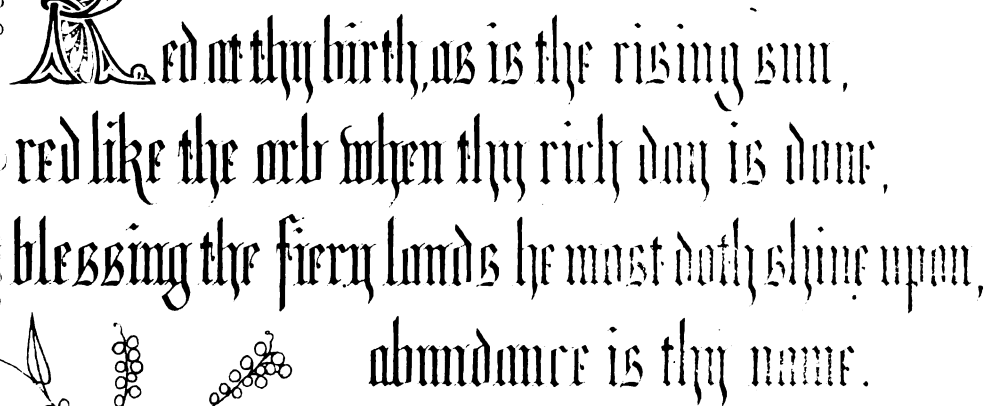 Red at thy birth, as is the rising sun,
red like the orb when thy rich day is done,
blessing the fiery lands he most doth shine upon,
abundance is thy name.